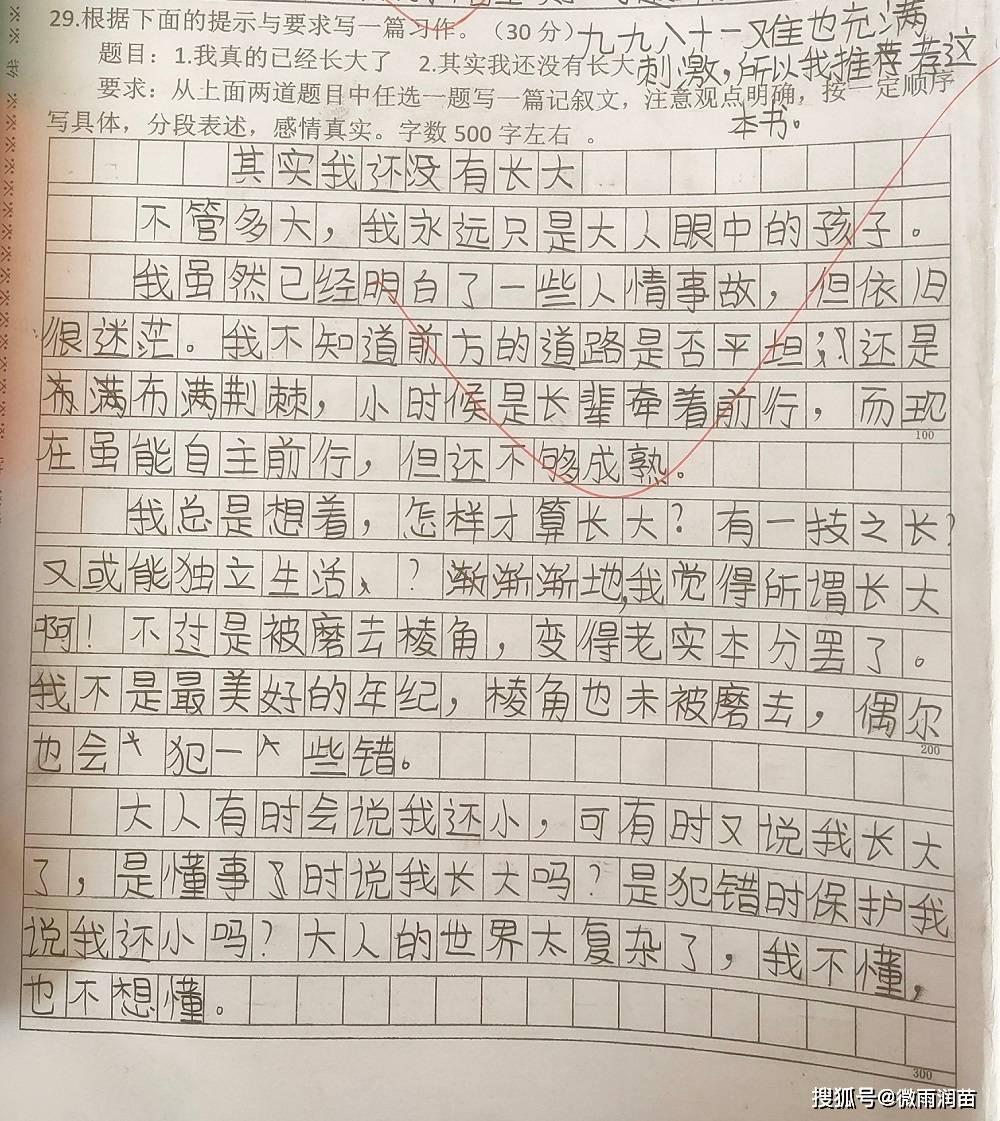 29.根据下面的提示与要求写一篇习作。（30分）
九九八十一难也充满
题目：1.我真的已经长大了 2.其实我还没有长大
刺激，所以我推荐荐这
要求：从上面两道题目中任选一题写一篇记叙文，注意观点明确，按一定顺序
本书。
写具体，分段表述，感情真实。字数500字左右 。
其实我还没有长大
不管多大，我永远只是大人眼中的孩子。
我虽然已经明白了一些人情事故，但依旧
很迷茫。我不知道前方的道路是否平坦；还是
布满布满荆棘，小时候是长辈牵着前行，而现
100
在虽能自主前行，但还不够成熟。
我总是想着，怎样才算长大？有一技之长？
又或能独立生活、？渐渐渐地，我觉得所谓长大
啊！不过是被磨去棱角，变得老实本分罢了。
我不是最美好的年纪，棱角也未被磨去，偶尔
200
也会犯一些错。
大人有时会说我还小，可有时又说我长大
了，是懂事了时说我长大吗？是犯错时保护我
说我还小吗？大人的世界太复杂了，我不懂，
也不想懂。
300
搜狐号@微雨润苗